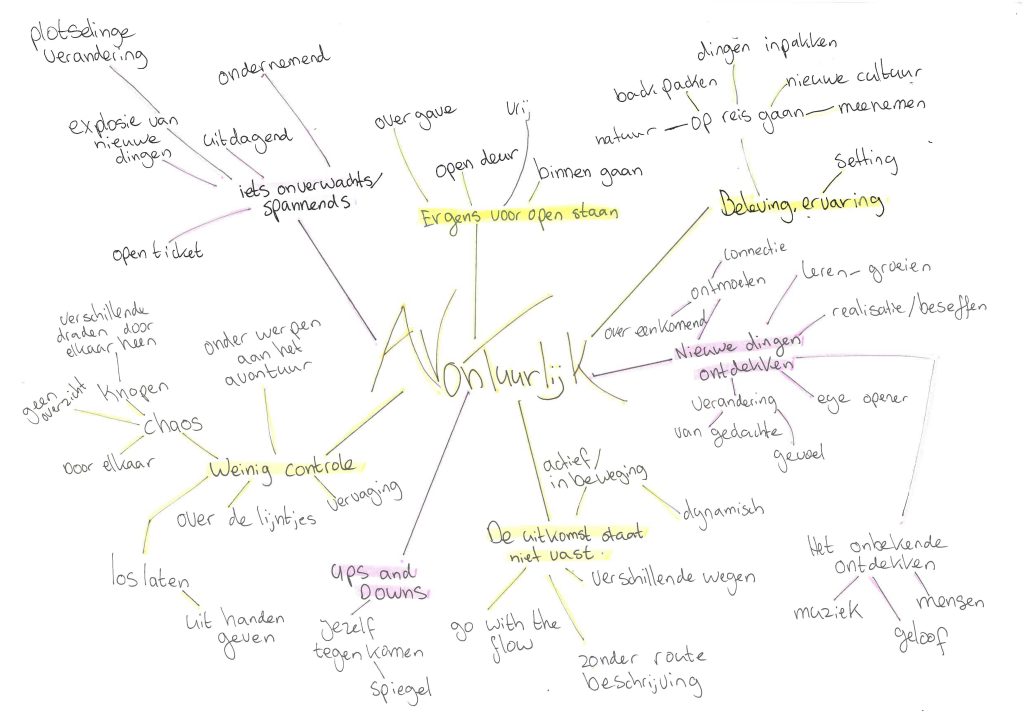 plotselinge
verandering
ondernemend
explosie van
nieuwe
dingen
uitdagend
iets onverwachts/
spannends
open ticket
overgave
vrij
open deur
binnen gaan
Ergens voor open staan
dingen inpakken
backpacken
nieuwe cultuur
natuur
op reis gaan
meenemen
setting
Beleving, ervaring
connectie
ontmoeten
overeenkomend
leren - groeien
realisatie/beseffen
Nieuwe dingen
ontdekken
verandering
van gedachte
gevoel
eye opener
Avontuurlijk
verschillende
draden door
elkaar heen
onderwerpen
aan het
avantuur
geen
overzicht
Knopen
chaos
Door elkaar
Weinig controle
over de lijntjes
vervaging
loslaten
uit handen
geven
ups and
Downs
jezelf
tegen komen
spiegel
actief/
in beweging
dynamisch
De uitkomst staat
niet vast.
verschillende wegen
go with the
flow
zonder route
beschrijving
Het onbekende
ontdekken
muziek
mensen
geloof